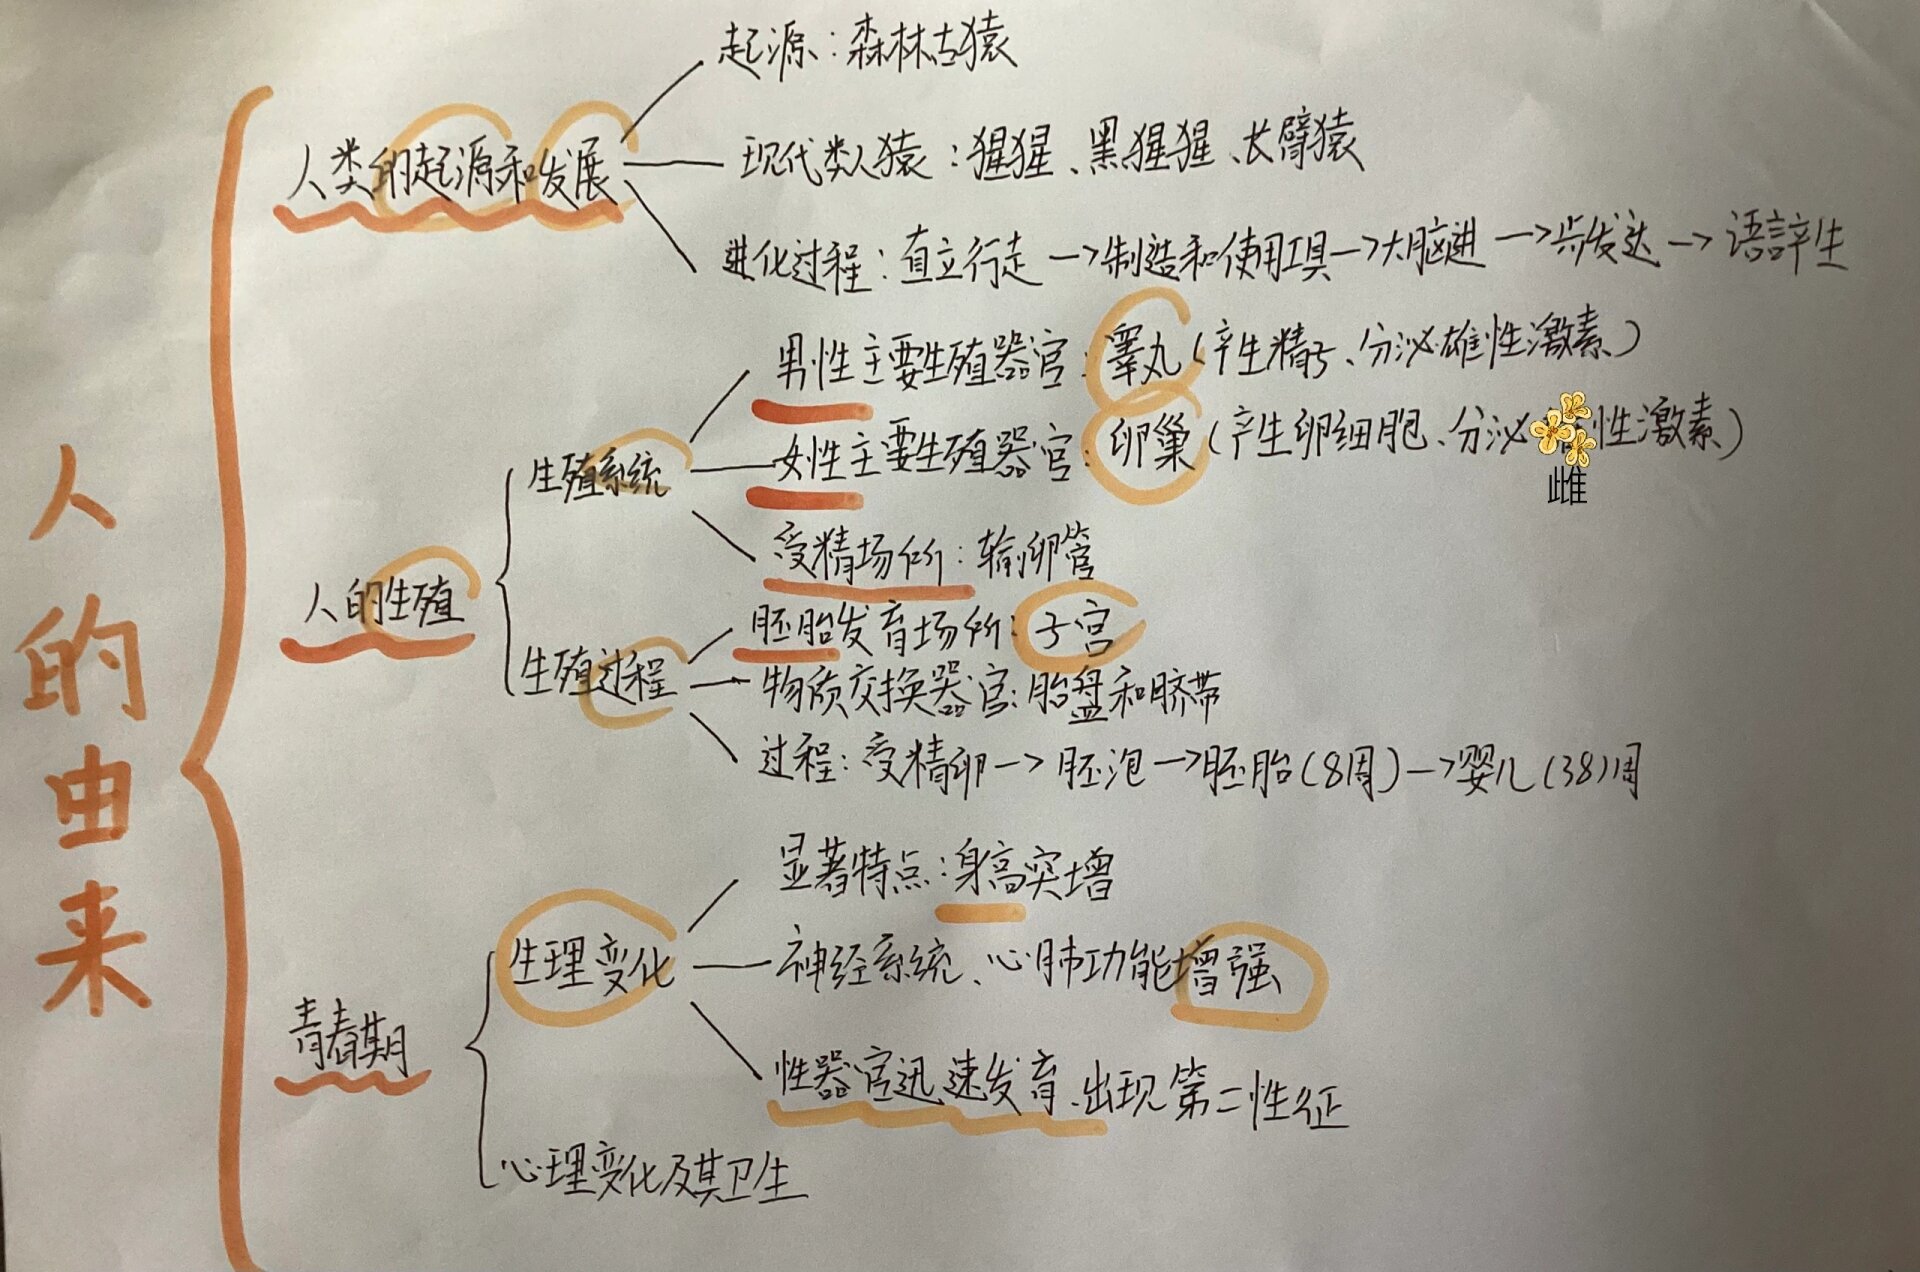 人的由来
人类的起源和发展
起源：森林古猿
现代类人猿：猩猩、黑猩猩、长臂猿
进化过程：直立行走→制造和使用工具→大脑进→步发达→语言产生
人的生殖
生殖系统
男性主要生殖器官：睾丸（产生精子、分泌雄性激素）
女性主要生殖器官：卵巢（产生卵细胞、分泌 性激素）
雌
受精场所：输卵管
生殖过程
胚胎发育场所：子宫
物质交换器官：胎盘和脐带
过程：受精卵→胚泡→胚胎（8周）→婴儿（38）周
青春期
生理变化
显著特点：身高突增
神经系统、心肺功能增强
性器官迅速发育、出现第二性征
心理变化及其卫生